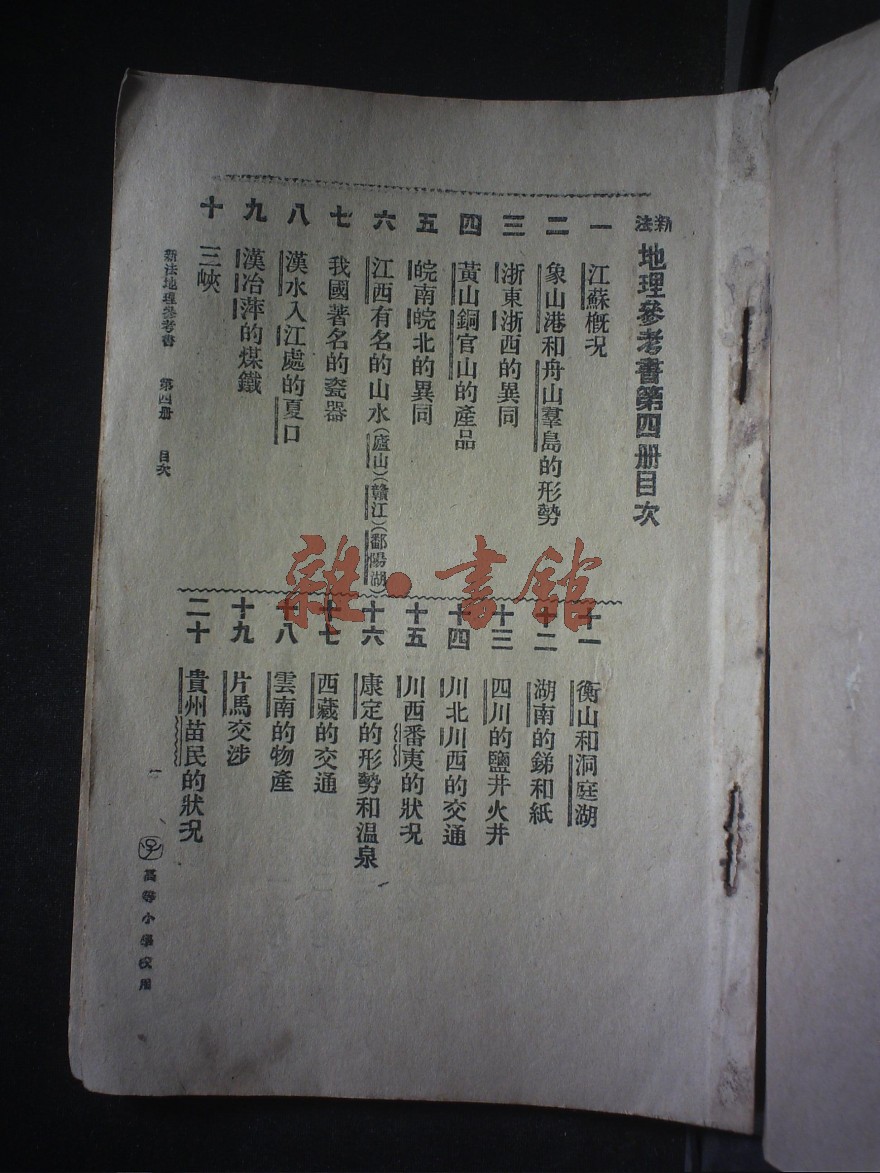 新法地理參考書第四册目次
一 江蘇槪況
二 象山港和舟山羣島的形勢
三 浙東浙西的異同
四 黃山銅官山的產品
五 皖南皖北的異同
六 江西有名的山水(廬山)(贛江)(鄱陽湖)
七 我國著名的瓷器
八 漢水入江處的夏口
九 漢冶萍的煤鐵
十 三峽
十一 衡山和洞庭湖
十二 湖南的銻和紙
十三 四川的鹽井火井
十四 川北川西的交通
十五 川西番夷的狀況
十六 康定的形勢和溫泉
十七 西藏的交通
十八 雲南的物產
十九 片馬交涉
二十 貴州苗民的狀況
新法地理參考書 第四册 目次 一 高等小學校用
雜·書館